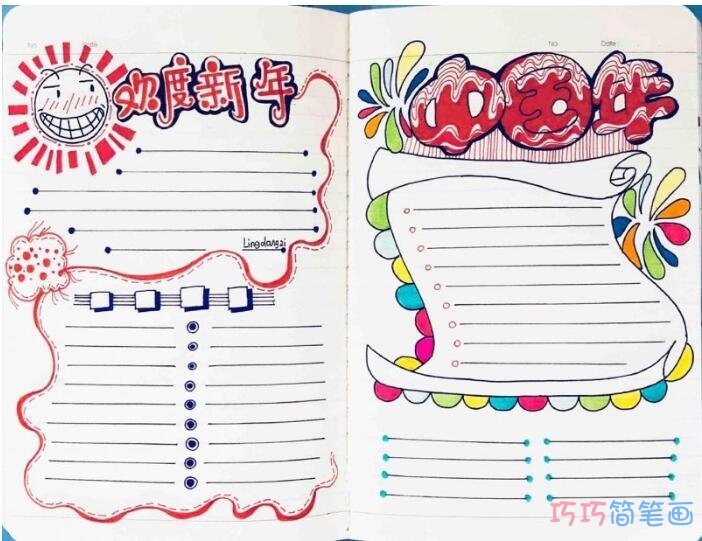 No.
Date
欢度新年
Lingdangzi
No.
Date
中国年
巧巧简笔画